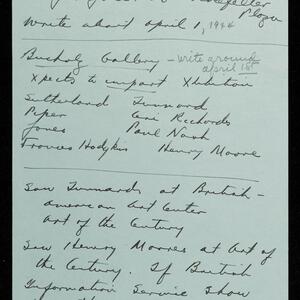 Plaza
Write about april 1, 1944
Bucholz Gallery - write around april 1st
Xpects to import Xhibition
Sutherland Tunnard
Piper Ceri Richards
Jones Paul Nash
Frances Hodgkins Henry Moore
Saw Tunnards at British-
American Art Center
Art of the Century
Saw Henry Moores at Art of
the Century. If British
Information Service Show